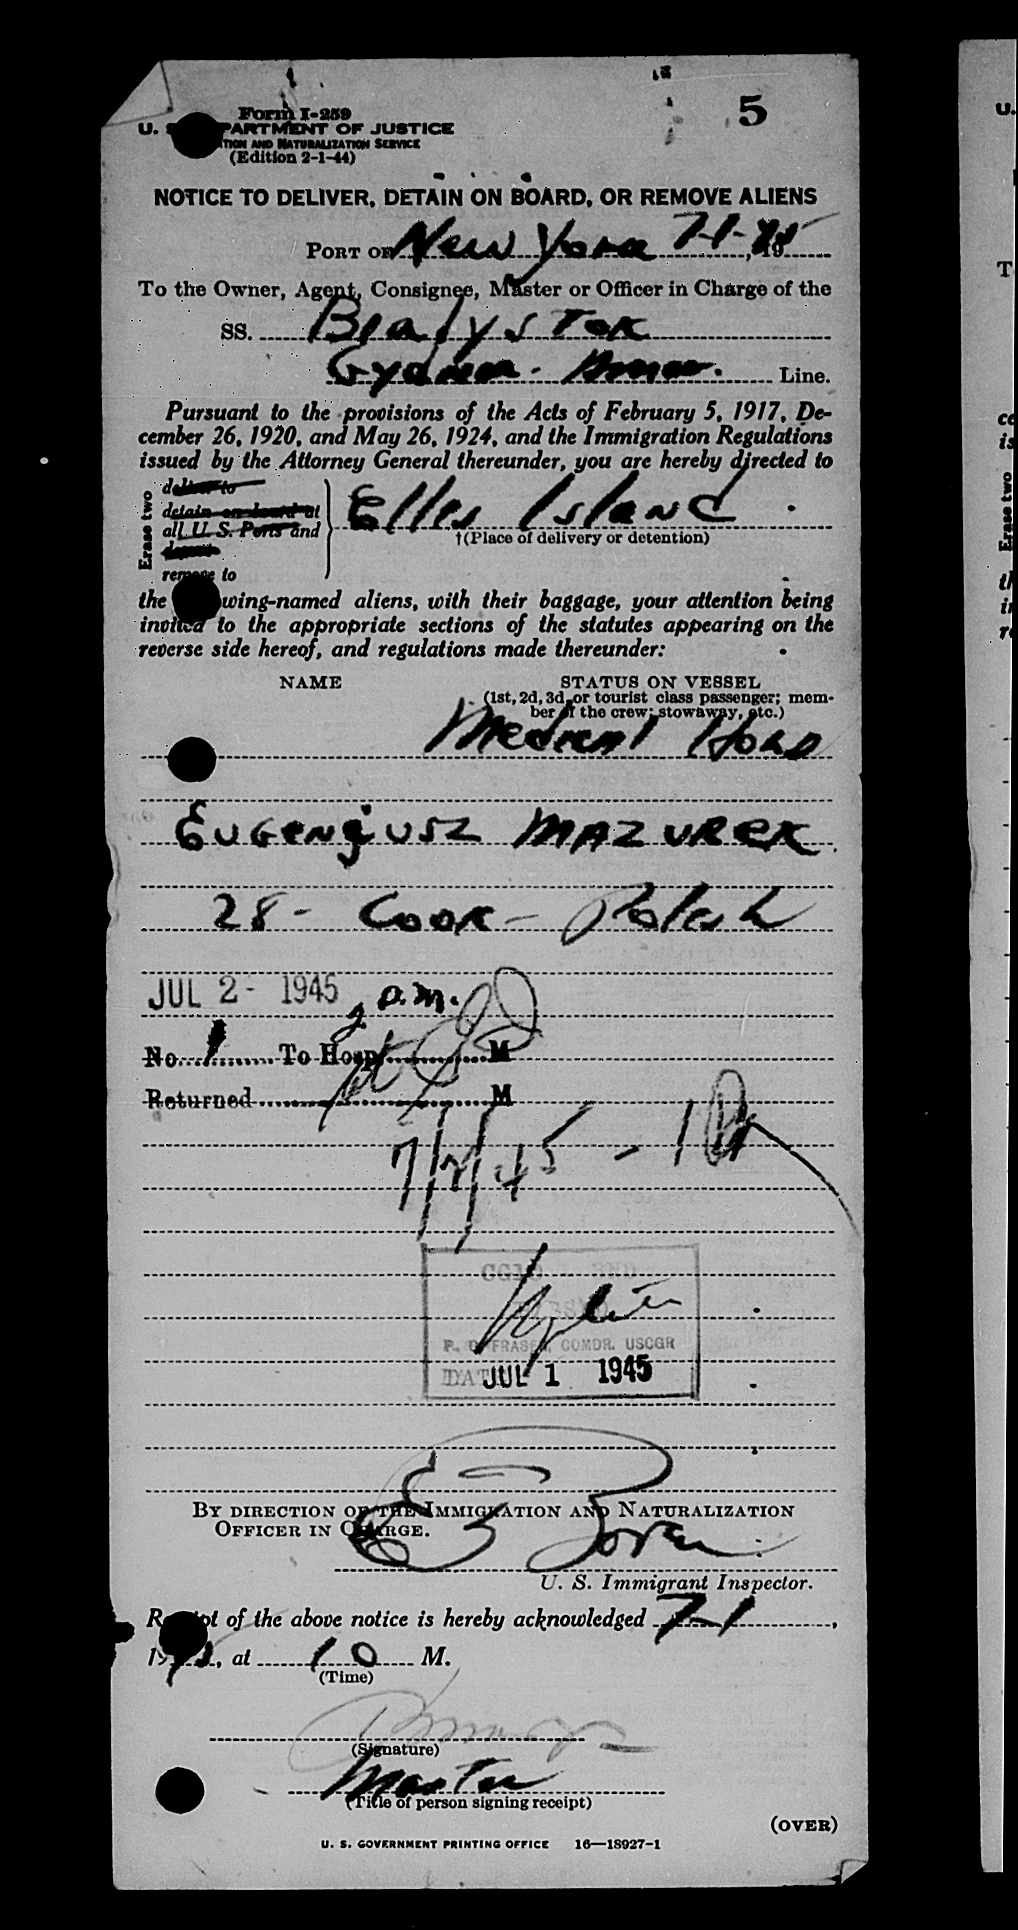 5
Form I-259
U. S. DEPARTMENT OF JUSTICE
IMMIGRATION AND NATURALIZATION SERVICE
(Edition 2-1-44)
NOTICE TO DELIVER, DETAIN ON BOARD, OR REMOVE ALIENS
PORT OF New York 7-1-45, 19
To the Owner, Agent, Consignee, Master or Officer in Charge of the
SS. Bialystok
Gydnia - Amer. Line.
Pursuant to the provisions of the Acts of February 5, 1917, De-
cember 26, 1920, and May 26, 1924, and the Immigration Regulations
issued by the Attorney General thereunder, you are hereby directed to
Erase two
deliver to
detain on board at
all U. S. Ports and
deport
remove to
Ellis Island
†(Place of delivery or detention)
the following-named aliens, with their baggage, your attention being
invited to the appropriate sections of the statutes appearing on the
reverse side hereof, and regulations made thereunder:
NAME STATUS ON VESSEL
(1st, 2d, 3d, or tourist class passenger; mem-
ber of the crew; stowaway, etc.)
Medical Hold
Eugenjusz MAZUREK
28 - Cook - Polish
JUL 2 - 1945 a.m.
No. 1 To Hosp. M
Returned M
7/2/45 - 1
P. FRASER, COMDR. USCGR
DATE JUL 1 1945
BY DIRECTION OF THE IMMIGRATION AND NATURALIZATION
OFFICER IN CHARGE.
U. S. Immigrant Inspector.
Receipt of the above notice is hereby acknowledged 7-1,
1945, at 10 M.
(Time)
(Signature)
Master
(Title of person signing receipt)
(OVER)
U. S. GOVERNMENT PRINTING OFFICE 16—18927-1